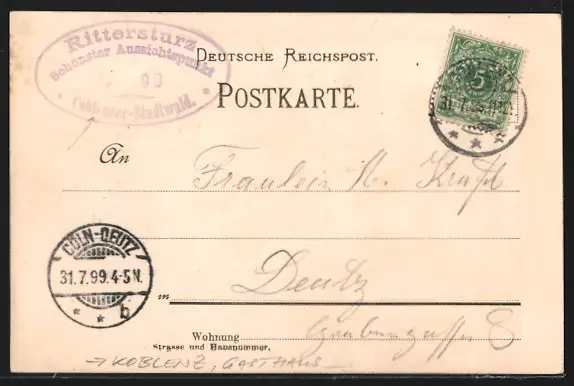 Rittersturz
Schönster Aussichtspunkt
99
Coblenzer-Stadtwald.
DEUTSCHE REICHSPOST.
POSTKARTE.
5
31.7.99
An
Fräulein A. Kraft
CÖLN-DEUTZ
31.7.99.4-5N.
* * b
in
Deutz
Wohnung
8
Strasse und Hausnummer.
→ KOBLENZ, GASTHAUS